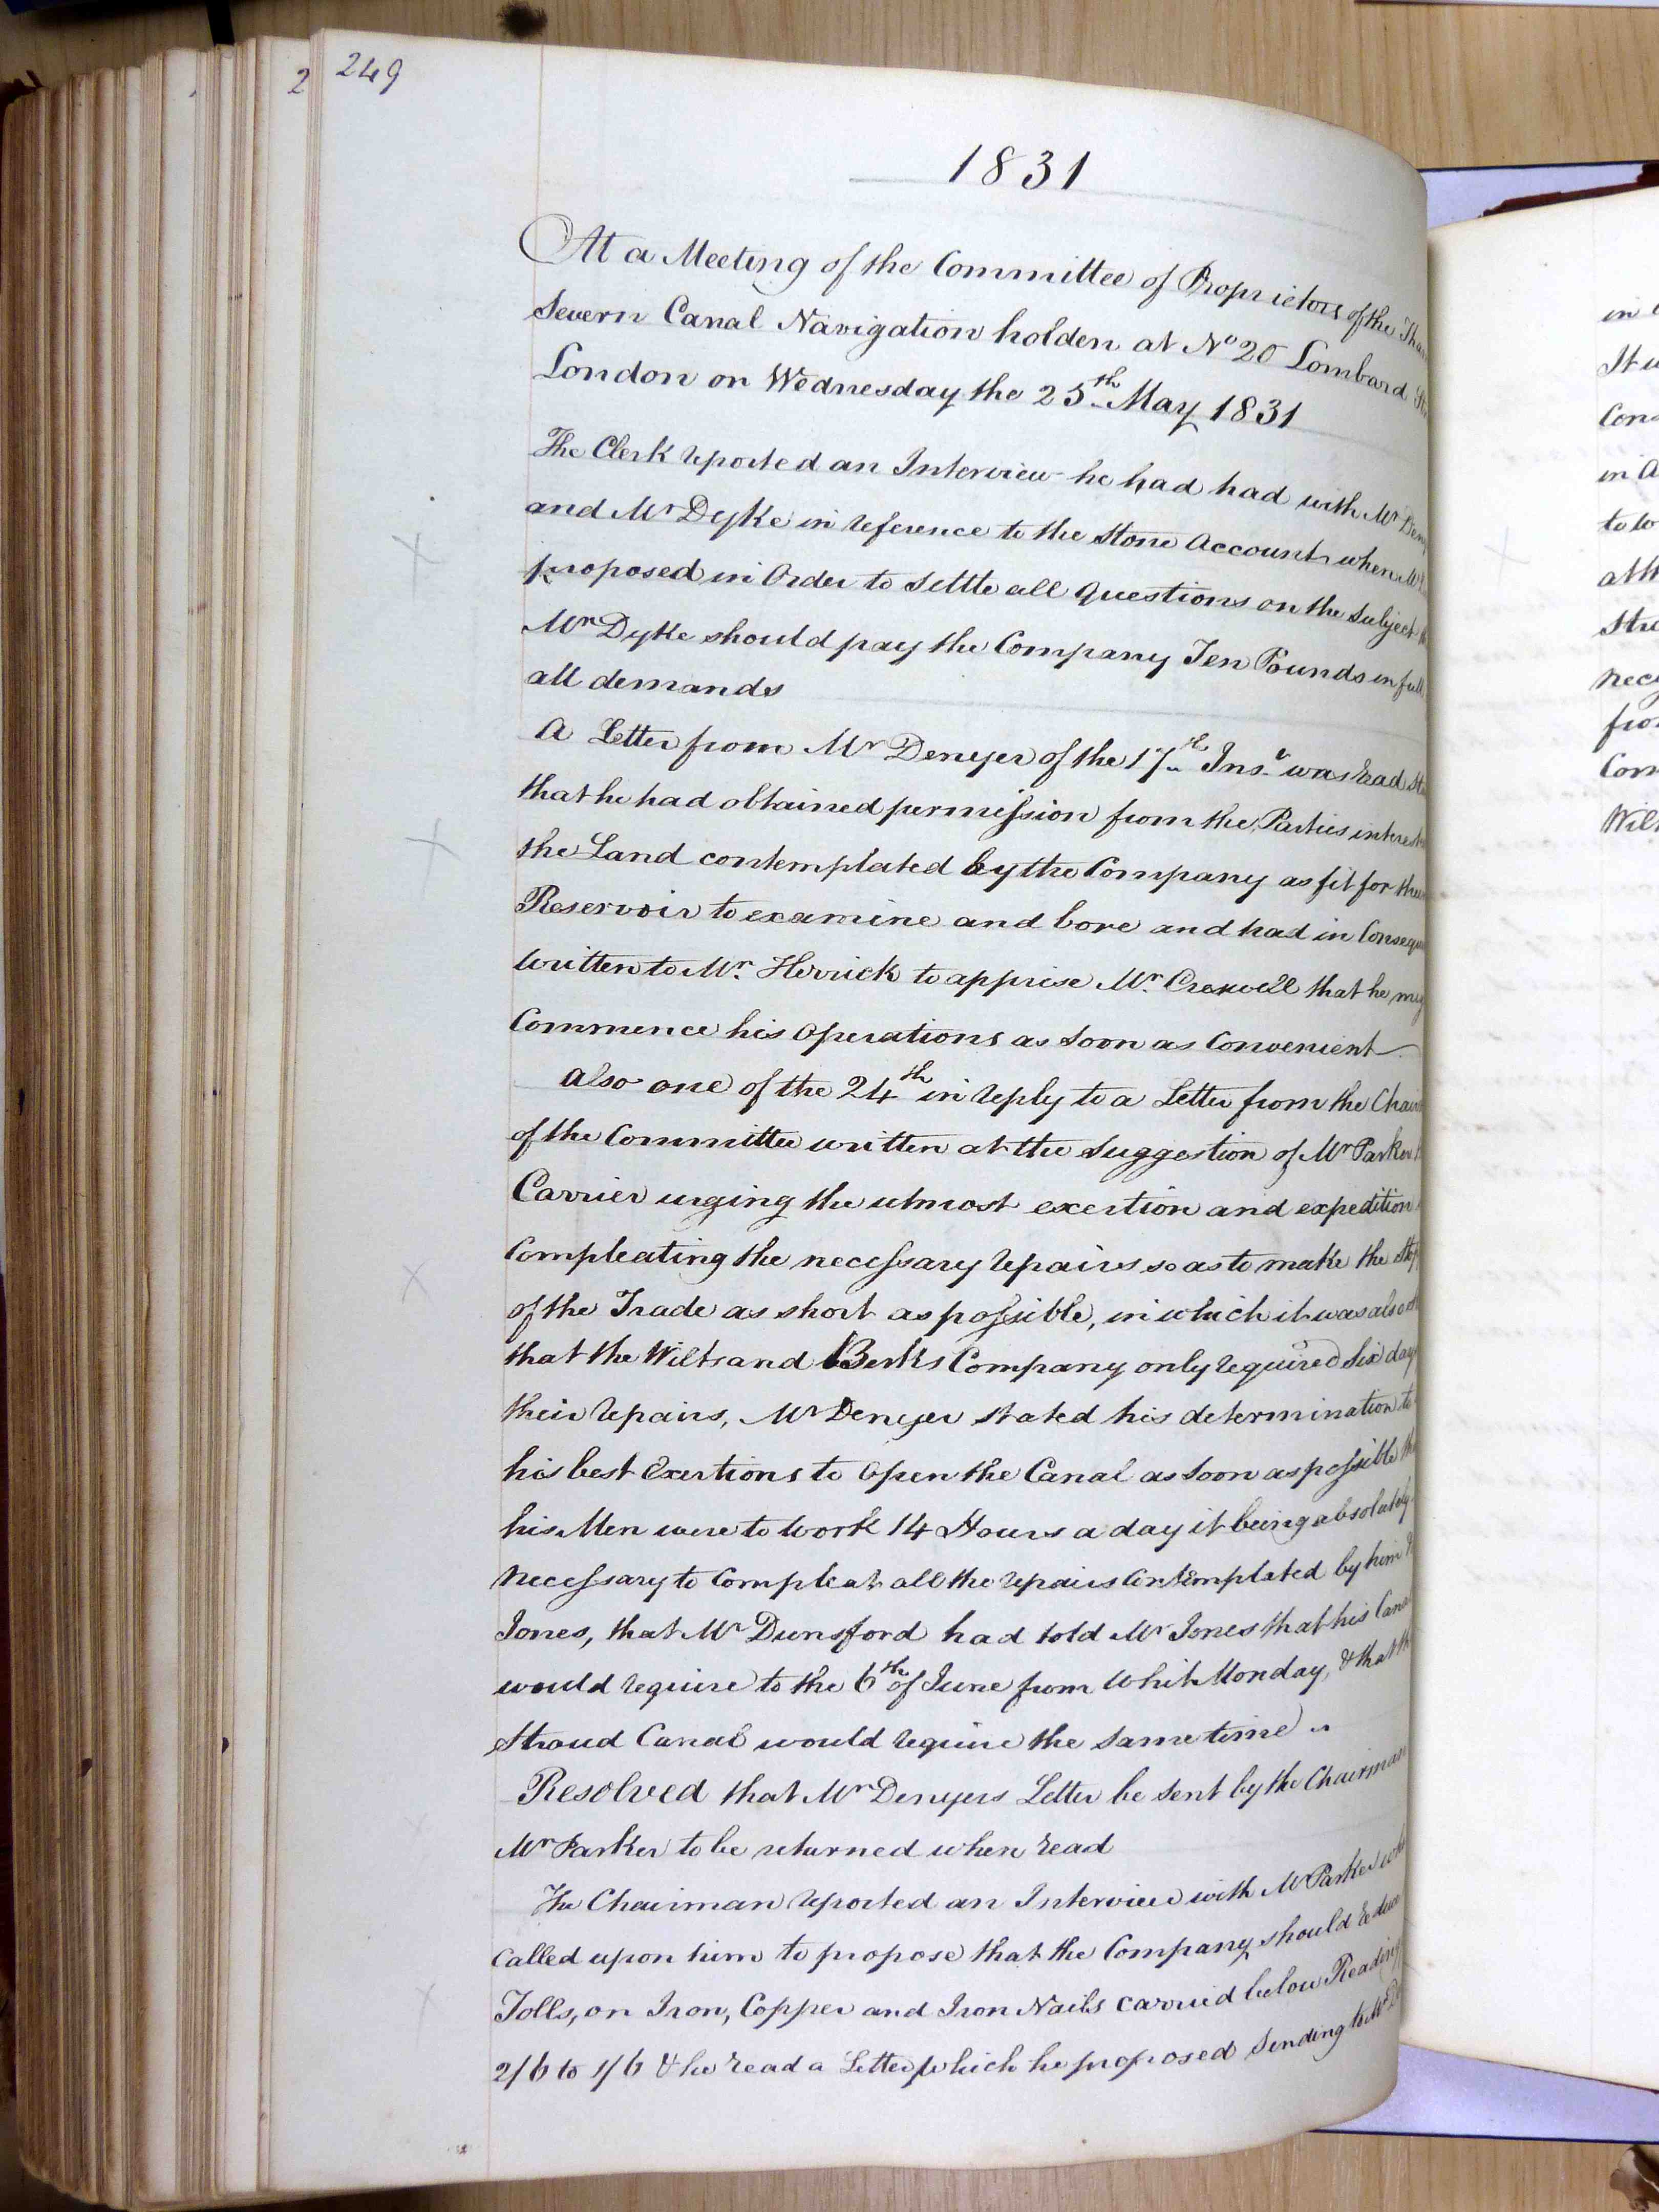 249
2
1831
At a Meeting of the Committee of Proprietors of the
Severn Canal Navigation holden at No 20 Lombard
London on Wednesday the 25th May 1831
The Clerk reported an Interview he had had with Mr
and Mr Dyke in reference to the Stone Account when Mr
proposed in Order to settle all questions on the Subject
Mr Dyke should pay the Company Ten Pounds in full
all demands
A Letter from Mr Denyer of the 17th Inst was read
that he had obtained permission from the Parties
the Land contemplated by the Company as fit for
Reservoir to examine and bore and had in
written to Mr. Herrick to apprise Mr. Creswell that he
Commence his Operations as soon as Convenient
also one of the 24th in reply to a Letter from the
of the Committee written at the Suggestion of Mr Parker
Carrier urging the utmost exertion and expedition
Compleating the necessary repairs so as to make the
of the Trade as short as possible, in which it was also
that the Wilts and Berks Company only required Six
their repairs, Mr Denyer stated his determination to
his best Exertions to Open the Canal as soon as possible
his Men were to work 14 Hours a day it being absolutely
necessary to Compleat all the repairs Contemplated by him
Jones, that Mr Dunsford had told Mr Jones that his
would require to the 6th of June from Whit Monday, & that
Stroud Canal would require the same time
Resolved that Mr Denyers Letter be sent by the Chairman
Mr Parker to be returned when read
The Chairman reported an Interview with Mr Parker
Called upon him to propose that the Company should
Tolls, on Iron, Copper and Iron Nails carried below Reading
2/6 to 1/6 & he read a Letter which he proposed Sending to Mr
in